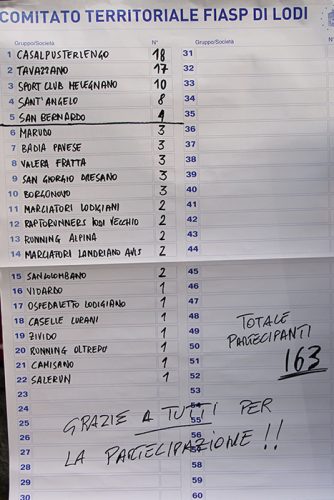 COMITATO TERRITORIALE FIASP DI LODI
Gruppo/Società N° Gruppo/Società N°
1 CASALPUSTERLENGO 18 31
2 TAVAZZANO 17 32
3 SPORT CLUB MELEGNANO 10 33
4 SANT'ANGELO 8 34
5 SAN BERNARDO 4 35
6 MARUDO 3 36
7 BADIA PAVESE 3 37
8 VALERA FRATTA 3 38
9 SAN GIORGIO DRESANO 3 39
10 BORGONOVO 3 40
11 MARCIATORI LODIGIANI 2 41
12 RAPTORUNNERS LODI VECCHIO 2 42
13 RUNNING ALPINA 2 43
14 MARCIATORI LANDRIANO AVIS 2 44
15 SANCOLOMBANO 2 45
16 VIDARDO 1 46
17 OSPEDALETTO LODIGIANO 1 47
18 CASELLE LURANI 1 48
19 ZIVIDO 1 49
20 RUNNING OLTREPO 1 50
21 CAMISANO 1 51
22 SALERUN 1 52
TOTALE
PARTECIPANTI
163
23 53
24 54
25 55
26 56
27 57
28 58
29 59
30 60
GRAZIE A TUTTI PER
LA PARTECIPAZIONE !!